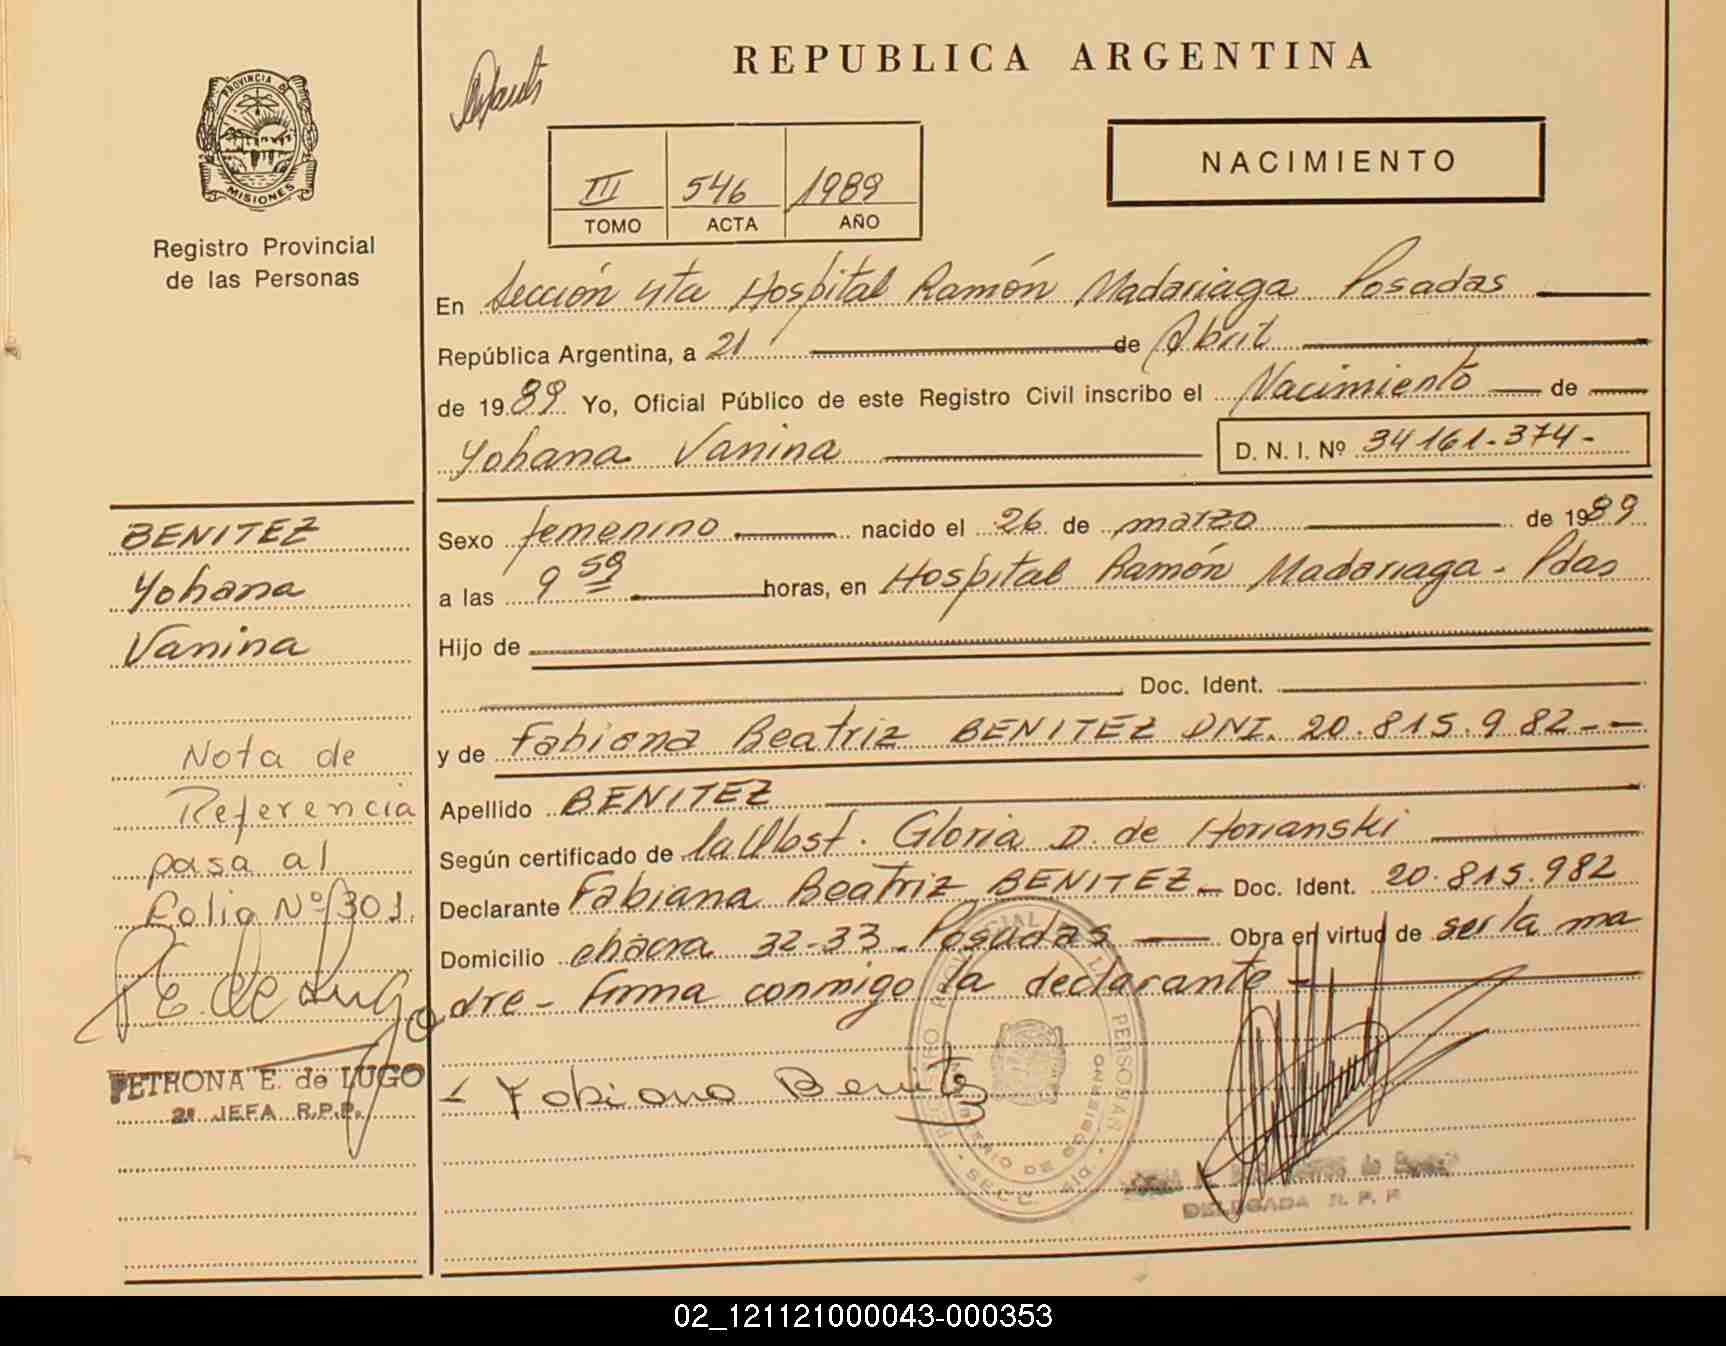 REPUBLICA ARGENTINA
PROVINCIA DE
MISIONES
Registro Provincial
de las Personas
III 546 1989
TOMO ACTA AÑO
NACIMIENTO
En Sección 4ta Hospital Ramón Madariaga Posadas
República Argentina, a 21 de Abril
de 1989 Yo, Oficial Público de este Registro Civil inscribo el Nacimiento de
Yohana Vanina D. N. I. Nº 34161.374-
Sexo femenino nacido el 26 de marzo de 1989
a las 9 59 horas, en Hospital Ramón Madariaga - Pdas
Hijo de
Doc. Ident.
y de Fabiana Beatriz BENITEZ DNI. 20.815.982-
Apellido BENITEZ
Según certificado de la Obst. Gloria D. de Horianski
Declarante Fabiana Beatriz BENITEZ - Doc. Ident. 20.815.982
Domicilio chacra 32-33 - Posadas Obra en virtud de ser la ma
dre - Firma conmigo la declarante -
Fabiana Benitez
DELEGADA R. P. P.
BENITEZ
Yohana
Vanina
Nota de
Referencia
pasa al
folio Nº 301
P E. de Lugo
PETRONA E. de LUGO
2ª JEFA R.P.P.
02_121121000043-000353